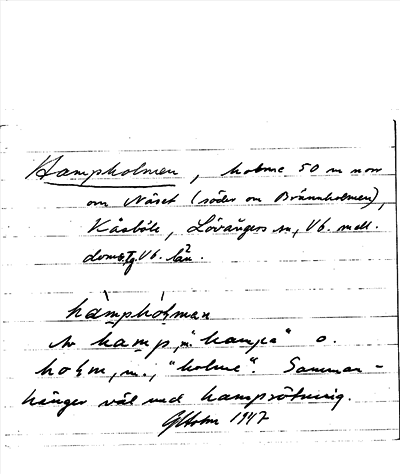 Hampholmen, holme 50 m norr
om Näset (söder om Brännholmen),
Kåsböle, Lövångers sn, Vb. mell.
doms. Vb. län.
hàmphóɫman
Av hamp, "hampa" o.
hoɫm, m., "holme". Samman-
hänger väl med hamprötning.
GHolm 1947